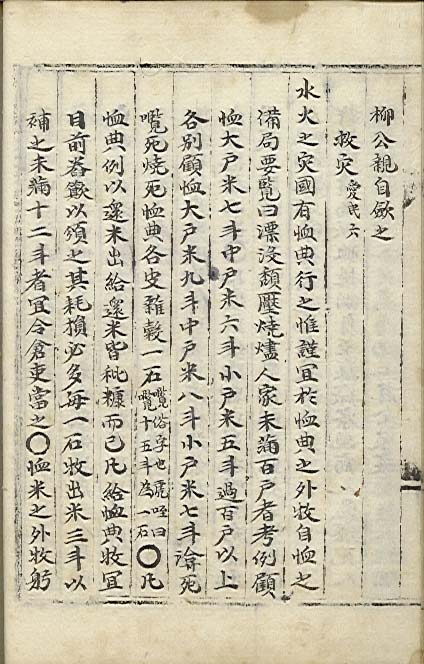 柳公親自歛之
救灾 愛民六
水火之灾國有恤典行之惟謹宜於恤典之外牧自恤之
備局要覽曰漂沒頹壓燒燼人家未滿百戶者考例顧
恤大戶米七斗中戶米六斗小戶米五斗過百戶以上
各別顧恤大戶米九斗中戶米八斗小戶米七斗渰死
囕死燒死恤典各皮雜穀一石
囕俗字也虎咥曰
囕十五斗為一石
○凡
恤典例以還米出給還米皆秕糠而已凡給恤典牧宜
目前歛以頒之其耗損必多每一石牧出米三斗以
補之未滿十二斗者宜令倉吏當之○恤米之外牧躬